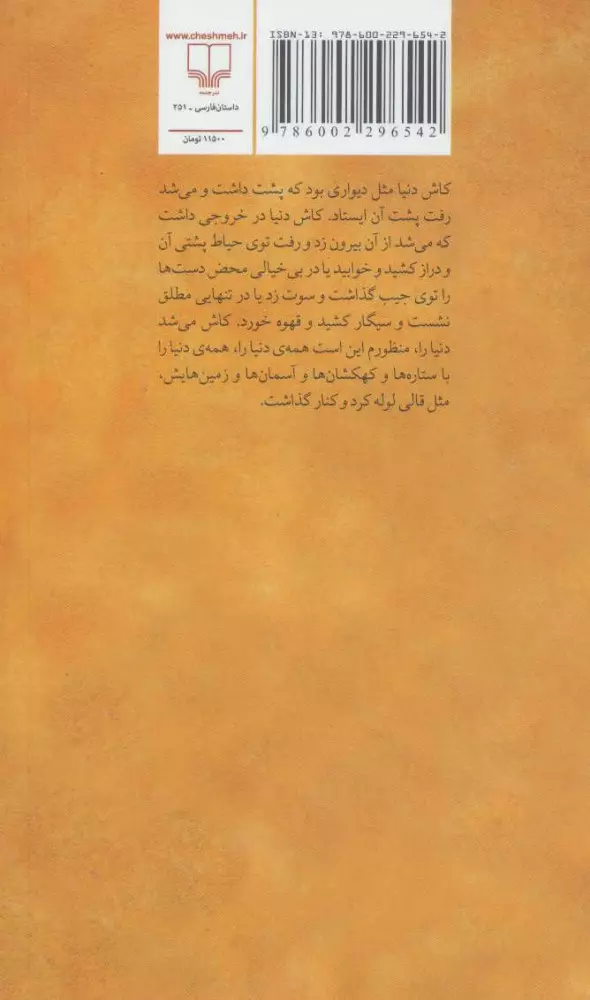 www.cheshmeh.ir
نشر چشمه
داستان فارسی ـ ۲۵۱
۱۱۵۰۰ تومان
ISBN-13: 978-600-229-654-2
9 786002 296542
کاش دنیا مثل دیواری بود که پشت داشت و می‌شد
رفت پشت آن ایستاد. کاش دنیا در خروجی داشت
که می‌شد از آن بیرون زد و رفت توی حیاط پشتی آن
و دراز کشید و خوابید یا در بی‌خیالی محض دست‌ها
را توی جیب گذاشت و سوت زد یا در تنهایی مطلق
نشست و سیگار کشید و قهوه خورد. کاش می‌شد
دنیا را، منظورم این است همه‌ی دنیا را، همه‌ی دنیا را
با ستاره‌ها و کهکشان‌ها و آسمان‌ها و زمین‌هایش،
مثل قالی لوله کرد و کنار گذاشت.